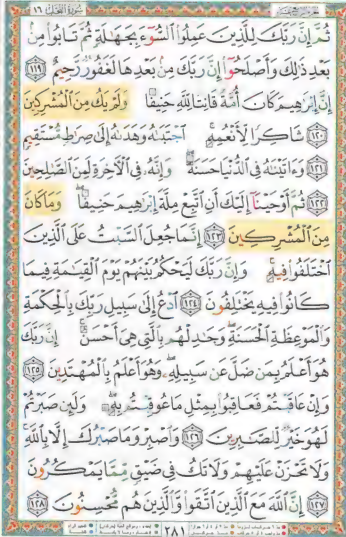 سُورَةُ النَّحْلِ ١٦
ثُمَّ إِنَّ رَبَّكَ لِلَّذِينَ عَمِلُوا۟ ٱلسُّوٓءَ بِجَهَٰلَةٍ ثُمَّ تَابُوا۟ مِنۢ
بَعْدِ ذَٰلِكَ وَأَصْلَحُوٓا۟ إِنَّ رَبَّكَ مِنۢ بَعْدِهَا لَغَفُورٌ رَّحِيمٌ ١١٩
إِنَّ إِبْرَٰهِيمَ كَانَ أُمَّةً قَانِتًا لِّلَّهِ حَنِيفًا وَلَمْ يَكُ مِنَ ٱلْمُشْرِكِينَ
١٢٠ شَاكِرًا لِّأَنْعُمِهِ ۚ ٱجْتَبَىٰهُ وَهَدَىٰهُ إِلَىٰ صِرَٰطٍ مُّسْتَقِيمٍ
١٢١ وَءَاتَيْنَٰهُ فِى ٱلدُّنْيَا حَسَنَةً ۖ وَإِنَّهُۥ فِى ٱلْءَاخِرَةِ لَمِنَ ٱلصَّٰلِحِينَ
١٢٢ ثُمَّ أَوْحَيْنَآ إِلَيْكَ أَنِ ٱتَّبِعْ مِلَّةَ إِبْرَٰهِيمَ حَنِيفًا ۖ وَمَا كَانَ
مِنَ ٱلْمُشْرِكِينَ ١٢٣ إِنَّمَا جُعِلَ ٱلسَّبْتُ عَلَى ٱلَّذِينَ
ٱخْتَلَفُوا۟ فِيهِ ۚ وَإِنَّ رَبَّكَ لَيَحْكُمُ بَيْنَهُمْ يَوْمَ ٱلْقِيَٰمَةِ فِيمَا
كَانُوا۟ فِيهِ يَخْتَلِفُونَ ١٢٤ ٱدْعُ إِلَىٰ سَبِيلِ رَبِّكَ بِٱلْحِكْمَةِ
وَٱلْمَوْعِظَةِ ٱلْحَسَنَةِ ۖ وَجَٰدِلْهُم بِٱلَّتِى هِىَ أَحْسَنُ ۚ إِنَّ رَبَّكَ
هُوَ أَعْلَمُ بِمَن ضَلَّ عَن سَبِيلِهِۦ ۖ وَهُوَ أَعْلَمُ بِٱلْمُهْتَدِينَ ١٢٥
وَإِنْ عَاقَبْتُمْ فَعَاقِبُوا۟ بِمِثْلِ مَا عُوقِبْتُم بِهِۦ ۖ وَلَئِن صَبَرْتُمْ
لَهُوَ خَيْرٌ لِّلصَّٰبِرِينَ ١٢٦ وَٱصْبِرْ وَمَا صَبْرُكَ إِلَّا بِٱللَّهِ ۚ
وَلَا تَحْزَنْ عَلَيْهِمْ وَلَا تَكُ فِى ضَيْقٍ مِّمَّا يَمْكُرُونَ
١٢٧ إِنَّ ٱللَّهَ مَعَ ٱلَّذِينَ ٱتَّقَوا۟ وَّٱلَّذِينَ هُم مُّحْسِنُونَ ١٢٨
٢٨١